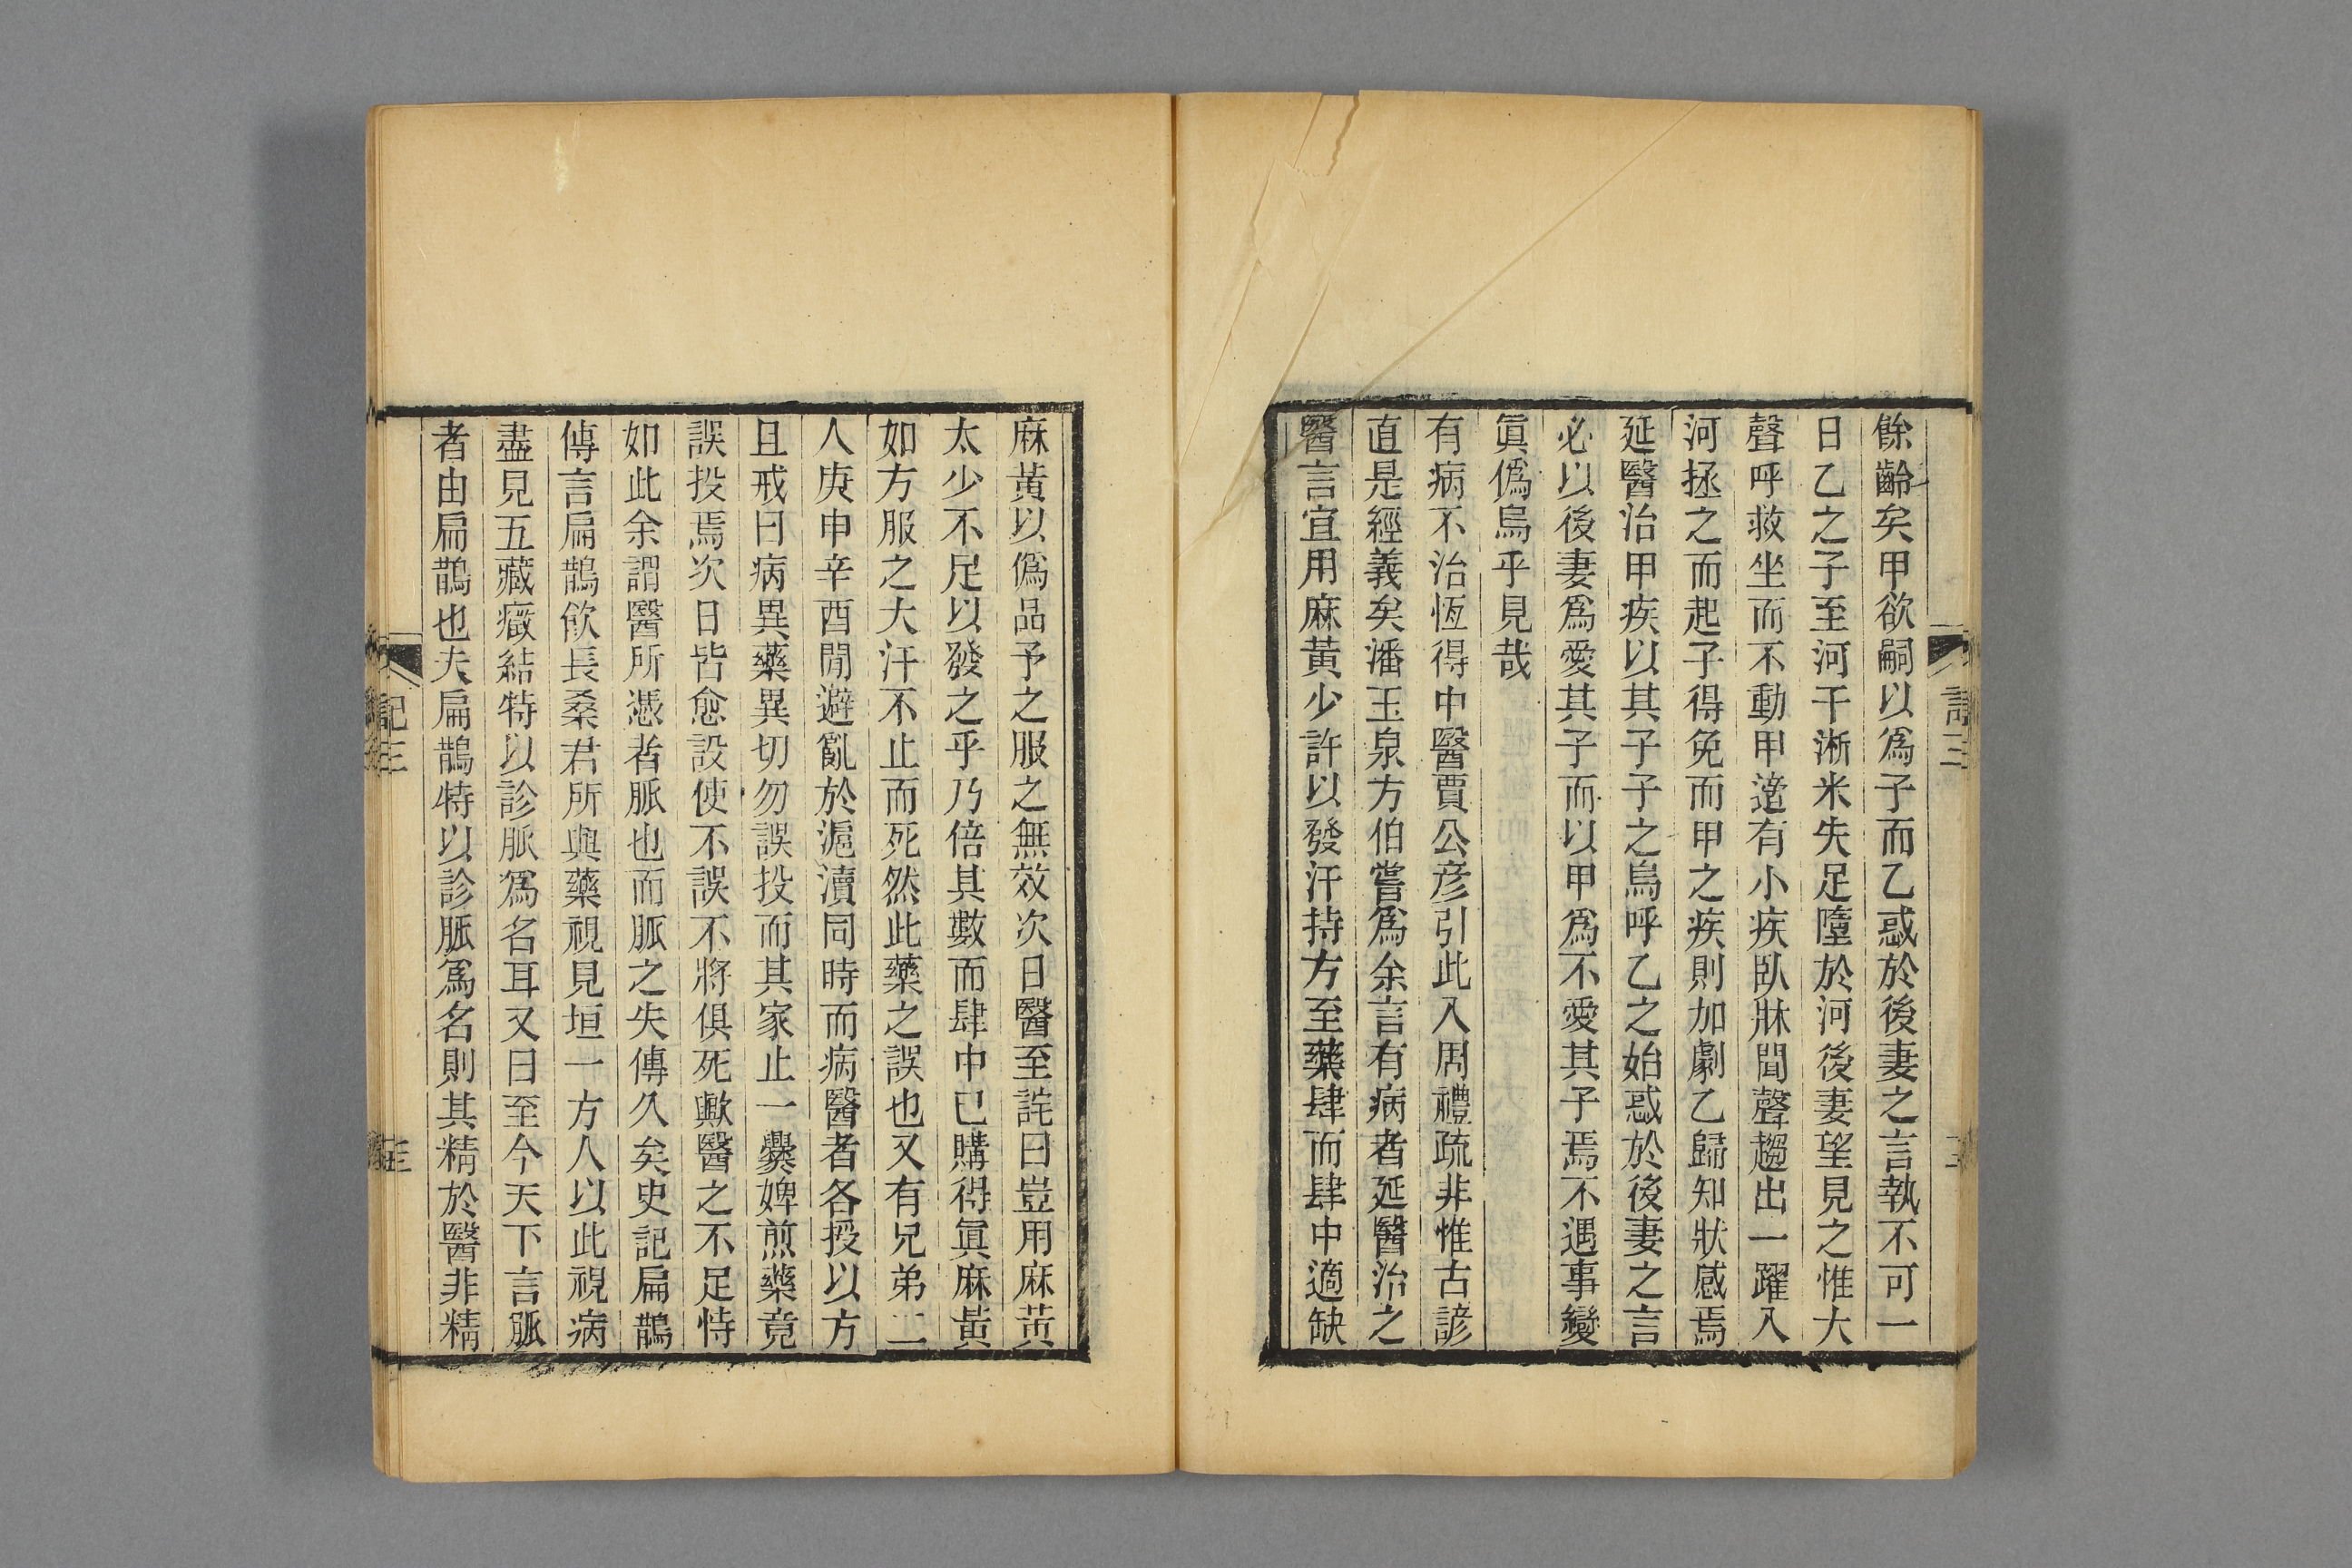 餘齡矣甲欲嗣以爲子而乙惑於後妻之言執不可一
日乙之子至河干淅米失足墮於河後妻望見之惟大
聲呼救坐而不動甲適有小疾臥牀聞聲趨出一躍入
河拯之而起子得免而甲之疾則加劇乙歸知狀感焉
延醫治甲疾以其子子之烏呼乙之始惑於後妻之言
必以後妻爲愛其子而以甲爲不愛其子焉不遇事變
眞僞烏乎見哉
有病不治恆得中醫賈公彦引此入周禮疏非惟古諺
直是經義矣潘玉泉方伯嘗爲余言有病者延醫治之
醫言宜用麻黃少許以發汗持方至藥肆而肆中適缺
麻黃以僞品予之服之無效次日醫至詫曰豈用麻黃
太少不足以發之乎乃倍其數而肆中已購得眞麻黃
如方服之大汗不止而死然此藥之誤也又有兄弟二
人庚申辛酉閒避亂於滬瀆同時而病醫者各授以方
且戒曰病異藥異切勿誤投而其家止一爨婢煎藥竟
誤投焉次日皆愈設使不誤不將俱死歟醫之不足恃
如此余謂醫所憑者脈也而脈之失傳久矣史記扁鵲
傳言扁鵲飮長桑君所與藥視見垣一方人以此視病
盡見五藏癥結特以診脈爲名耳又曰至今天下言脈
者由扁鵲也夫扁鵲特以診脈爲名則其精於醫非精
記三